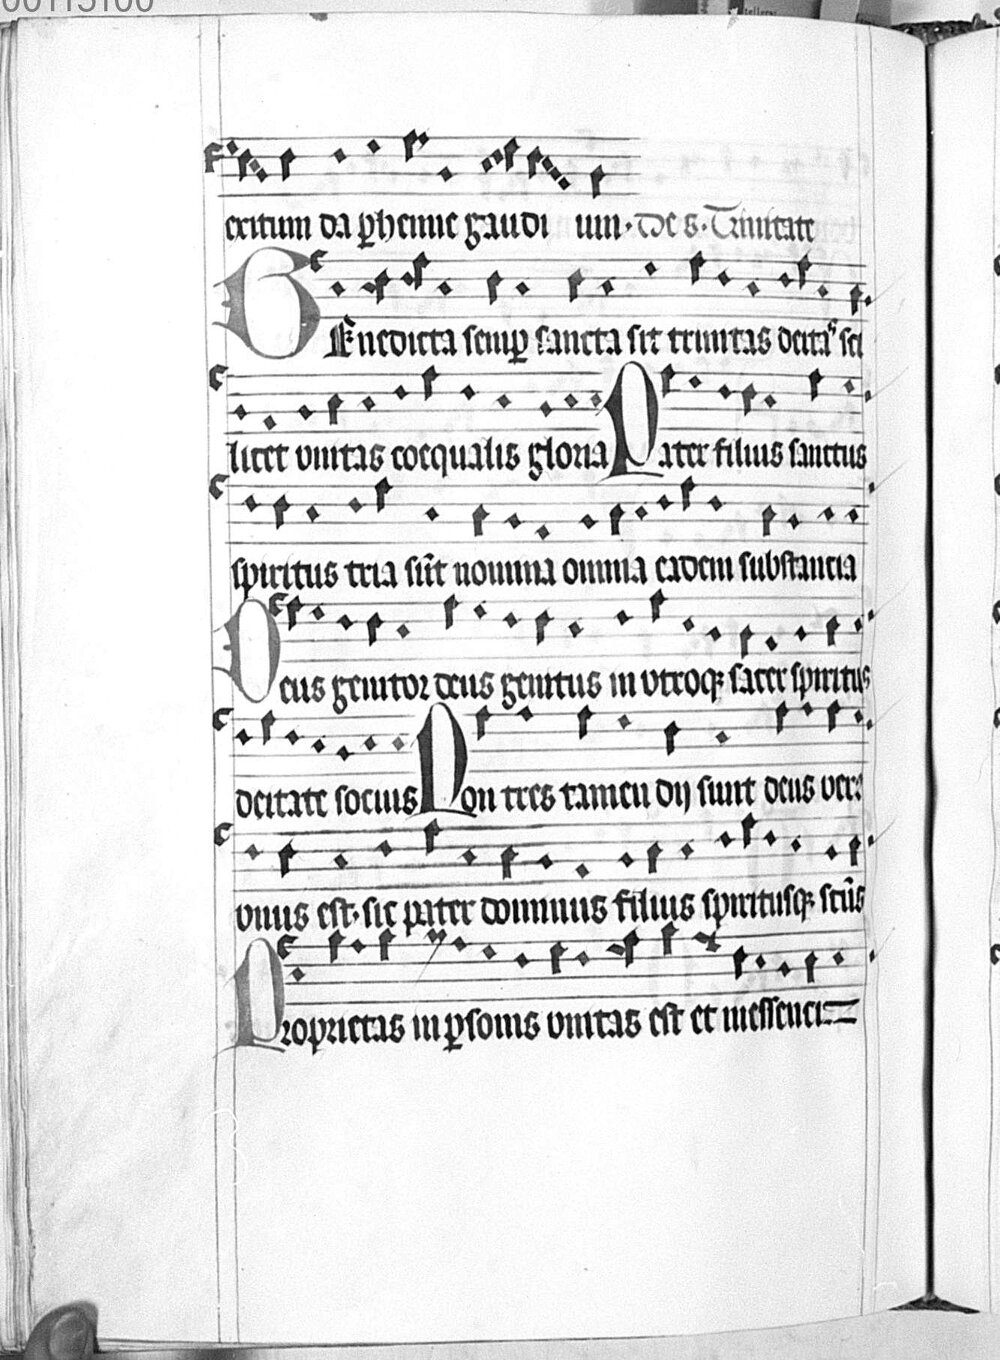 00113100
tellers
exitum da ꝑhenne gaudi um · De s · Trinitate
BEnedicta semꝑ sancta sit trinitas deitaˢ sci
licet vnitas coequalis gloria Pater filius sanctus
spiritus tria sūt nomina omnia eadem substancia
Deus genitor deus genitus in vtroqꝫ sacer spiritus
deitate socius Non tres tamen dij sunt deus verꝰ
vnus est · sic pater dominus filius spiritusqꝫ sctūs
Proprietas in ꝑsonis vnitas est et inessenci